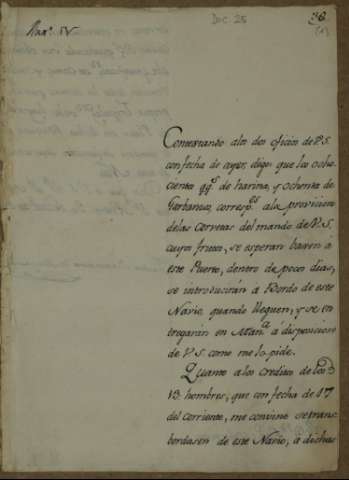 Num.º IV
Doc. 25
38
(1)
Contestando alos dos oficios de V.S.
con fecha de ayer, digo que los ocho
cientos qq.s de harina, y ochenta de
Garbanzos, corresp.tes ala provision
delas Corvetas del mando de V.S.
cuyos frutos, se esperan baxen á
este Puerto, dentro de pocos dias,
se introducirán á Bordo de este
Navio, quando lleguen, y se en
tregarán en á disposicion
de V.S. como me lo pide.
Quanto alos Creditos de los
13 hombres, que con fecha de 17
del corriente, me convine se trans
bordasen de este Navio, á dichas